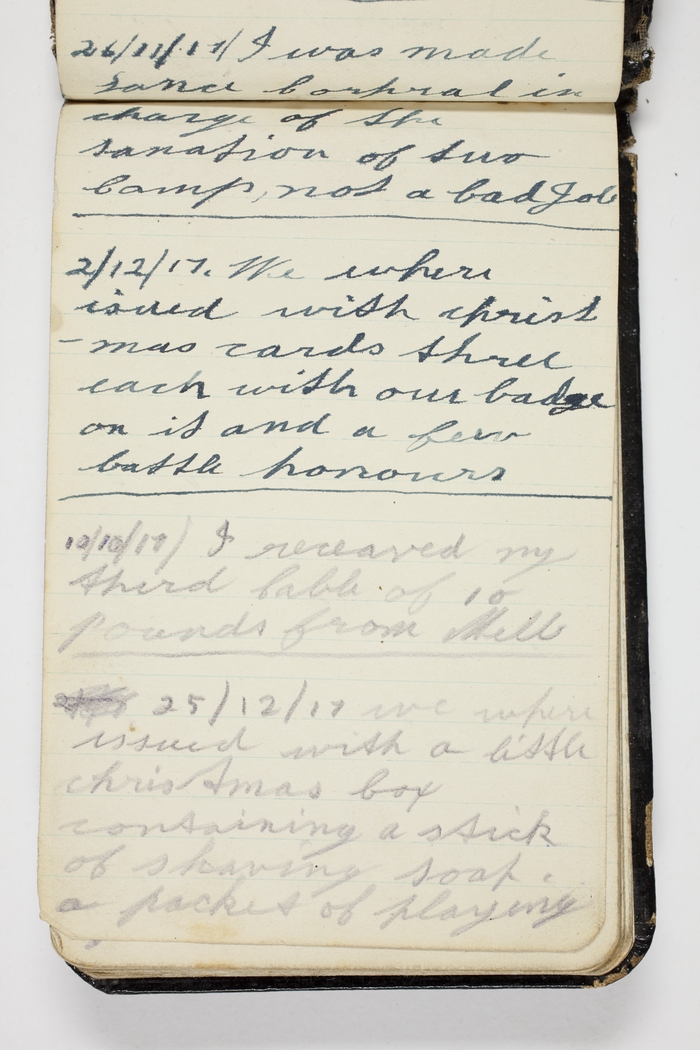 26/11/17/ I was made
Lance Corpral in
charge of the
sanation of two
Camp, not a bad Job
2/12/17. We where
issued with christ
-mas cards three
each with our badge
on it and a few
battle honours
10/10/17) I receaved my
third Cable of 10
pounds from Mell
25/12/17 we where
issued with a little
christmas box
containing a stick
of shaving soap.
a packet of playing